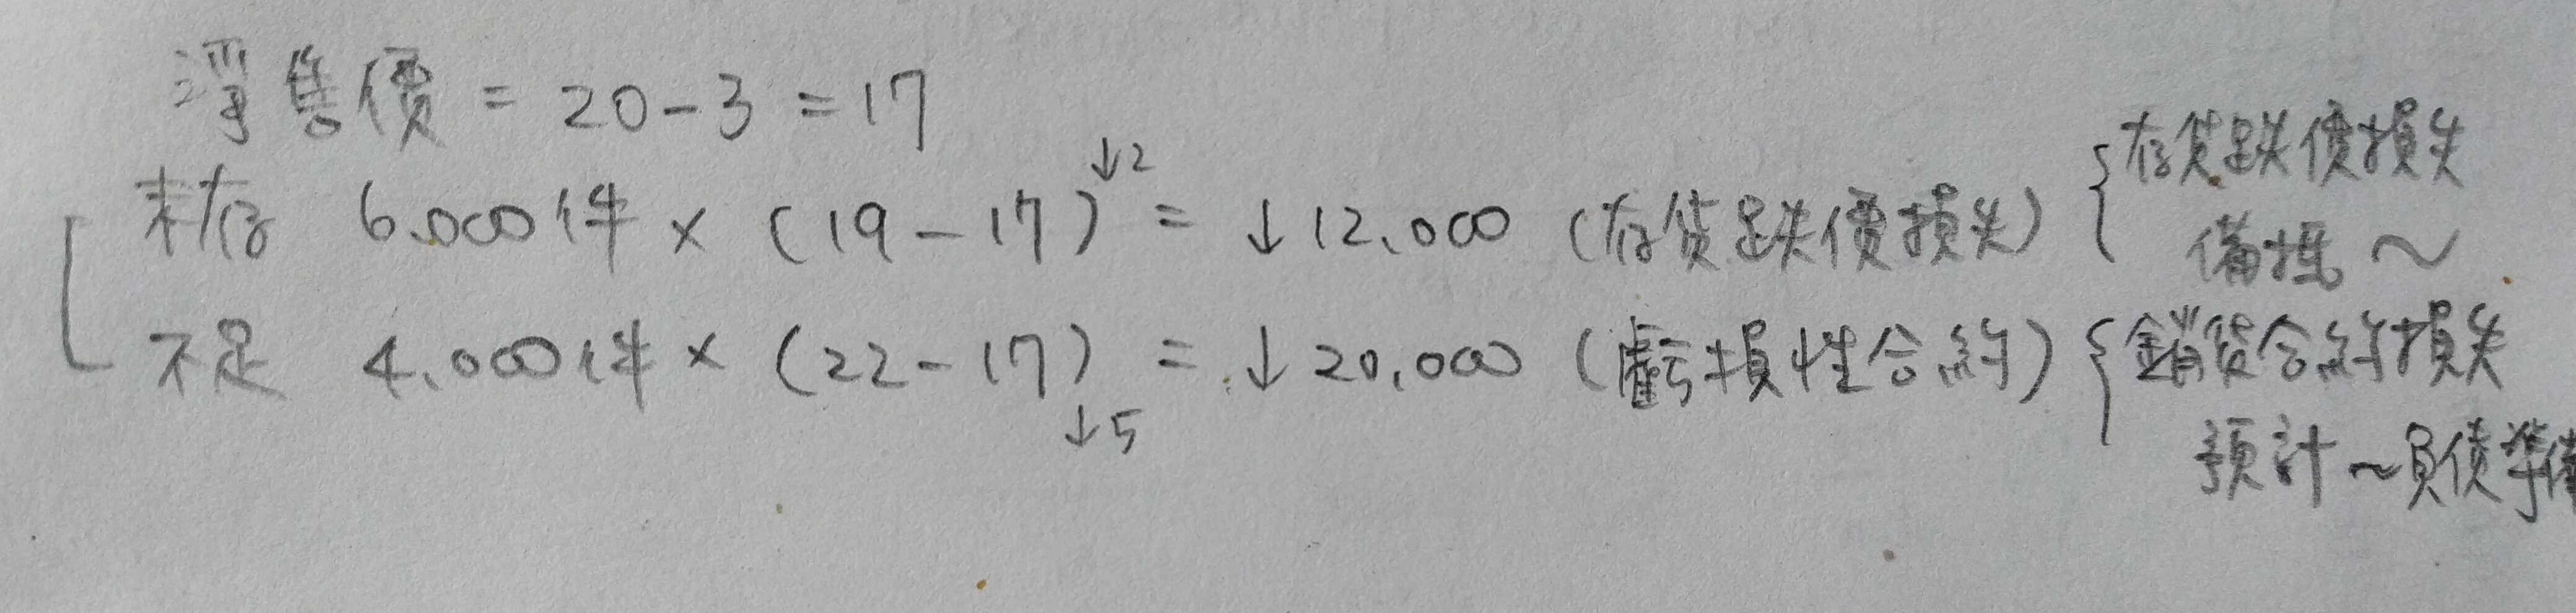 淨售價 = 20-3 = 17
↓2
庫存 6,000件 × (19-17) = ↓12,000 (存貨跌價損失) { 存貨跌價損失
備抵~
不足 4,000件 × (22-17) = ↓20,000 (虧損性合約) { 銷貨合約損失
↓5
預計~負債準備